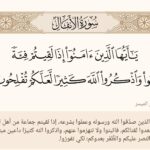 سورة الأنفال
يَا أَيُّهَا الَّذِينَ آمَنُوا إِذَا لَقِيتُمْ فِئَةً
وا وَاذْكُرُوا اللَّهَ كَثِيرًا لَّعَلَّكُمْ تُفْلِحُو
الميسر
الذين صدقوا الله ورسوله وعملوا بشرعه، إذا لقيتم جماعة من أهل
لقتالكم، فاثبتوا ولا تنهزموا عنهم، واذكروا الله كثيرا داعين
النصر عليهم والظفر بعدوكم؛ لكي تفوزوا.